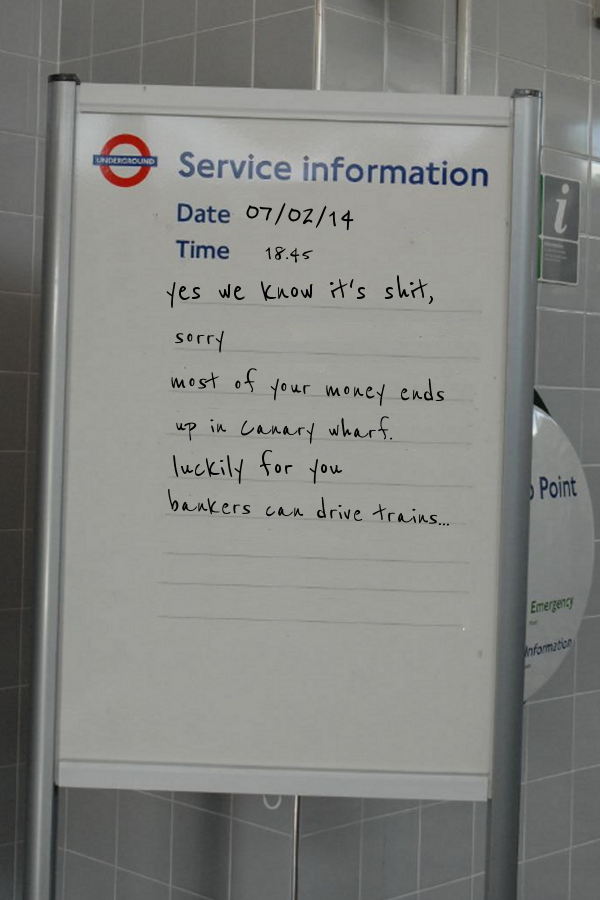 UNDERGROUND
Service information
Date 07/02/14
Time 18.45
yes we know it's shit,
sorry
most of your money ends
up in canary wharf.
luckily for you
bankers can drive trains...
i
Point
Emergency
Information